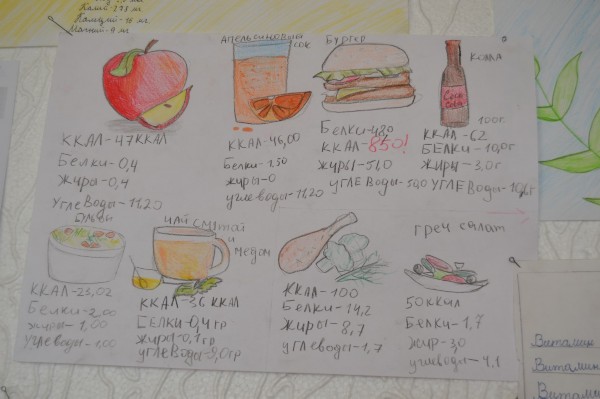 Калий - 278 мг
Магний - 9 мг
ККАЛ - 47 ККАЛ
Белки - 0,4
Жиры - 0,4
Углеводы - 11.20
АПЕЛЬСИНОВЫЙ
СОК
ККАЛ - 46,00
Белки - 1,50
Жиры - 0
углеводы - 11.20
БУРГЕР
Белки - 480
ККАЛ - 850!
Жиры - 540
УГЛЕВОДЫ - 500
КОЛЛА
Coca
Cola
100г.
ККАЛ - 62
БЕЛКИ - 10,0г
Жиры - 3,0г
УГЛЕВОДЫ -
ККАЛ - 23,02
Белки - 2,00
Жиры - 1,00
углеводы - 1,00
ЧАЙ С МЯТОЙ
И
МЕДОМ
ККАЛ - 36 ККАЛ
БЕЛКИ - 0,4 гр
Жиры - 0,1 гр
УГЛЕВОДЫ - 9,0 гр
ККАЛ - 100
Белки - 14,2
Жиры - 8,7
углеводы - 1,7
греч салат
50 ккал
Белки - 1,7
Жир - 3,0
углеводы - 4.1
Витамин
Витамин
Витамин